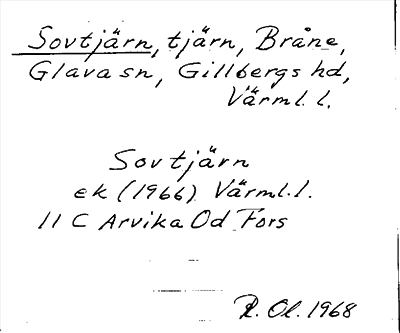 Sovtjärn, tjärn, Bråne,
Glava sn, Gillbergs hd,
Värml. l.
Sovtjärn
ek (1966) Värml. l.
11 C Arvika Od Fors
R. Ol. 1968